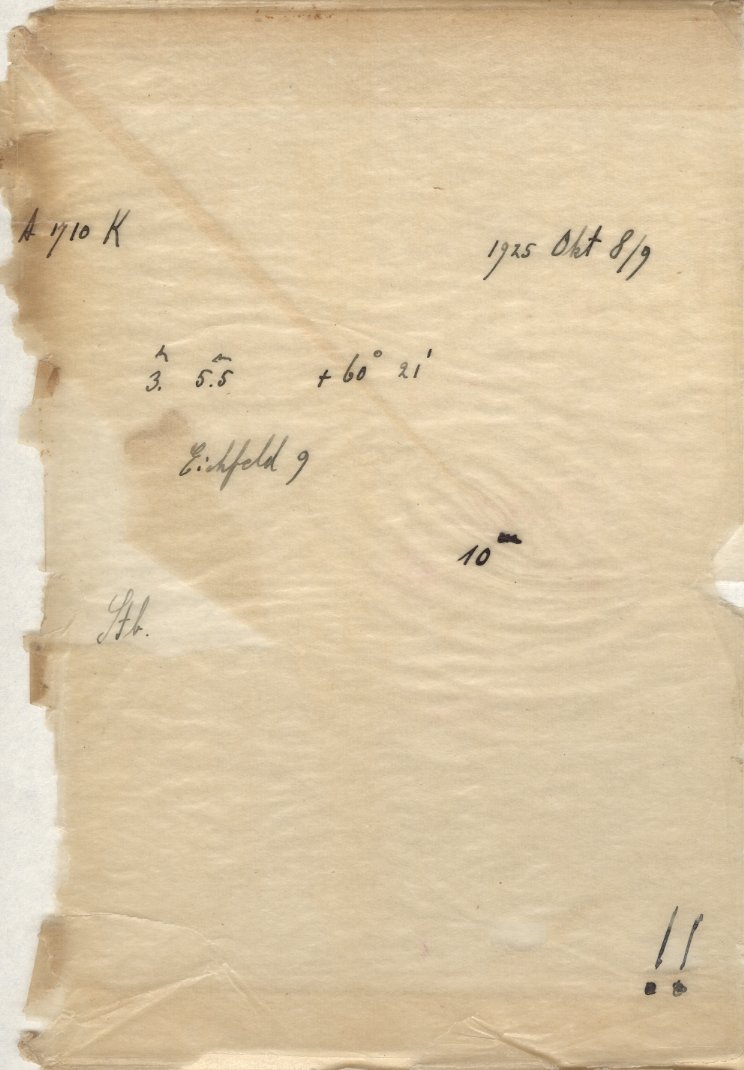 A 1710 K
1925 Okt 8/9
3.ʰ 5.5ᵐ +60° 21'
Eichfeld 9
10ᵐ
Stb.
!!